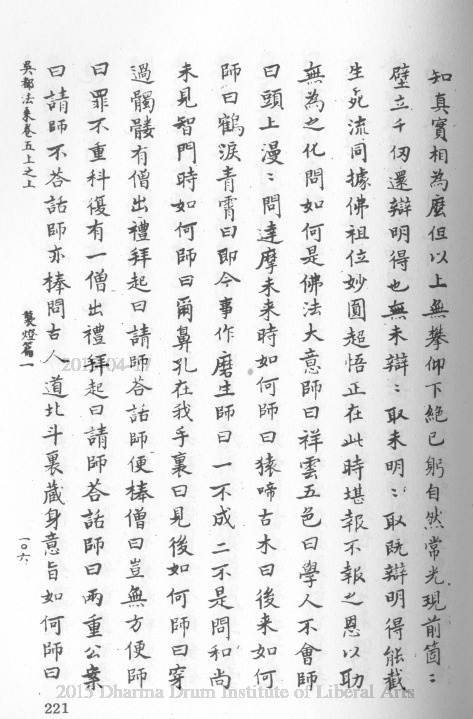 知真實相為麼但以上無攀仰下絕已躬自然常光現前箇〻
壁立千仞還辯明得也無未辯〻取未明〻取既辯明得能截
生死流同據佛祖位妙圓超悟正在此時堪報不報之恩以助
無為之化問如何是佛法大意師曰祥雲五色曰學人不會師
曰頭上漫〻問達摩未來時如何師曰猿啼古木曰後來如何
師曰鶴淚青霄曰即今事作磨生師曰一不成二不是問和尚
未見智門時如何師曰爾鼻孔在我手裏曰見後如何師曰穿
過髑髏有僧出禮拜起曰請師答話師便棒僧曰豈無方便師
曰罪不重科復有一僧出禮拜起曰請師答話師曰兩重公案
曰請師不答話師亦棒問古人道北斗裏藏身意旨如何師曰
吳都法乘卷五上之上
襲燈篇一
一〇六
221
2013 Dharma Drum Institute of Liberal Arts